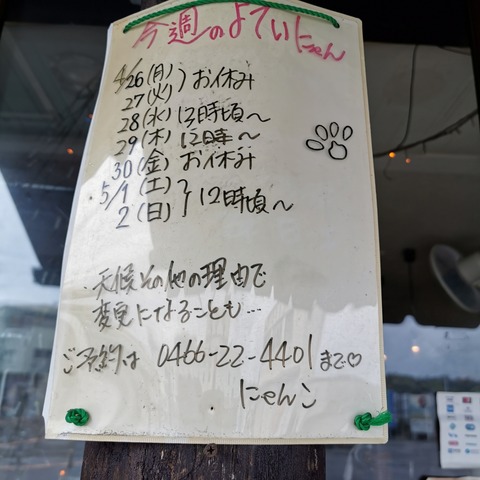 今週のよていにゃん
4/26(月)}お休み
27(火)
28(水)13時頃〜
29(木)12時〜
30(金)お休み
5/1(土)}12時頃〜
2(日)
.天候その他の理由で
変更になることも…
ご予約は 0466-22-4401まで♡
にゃんこ